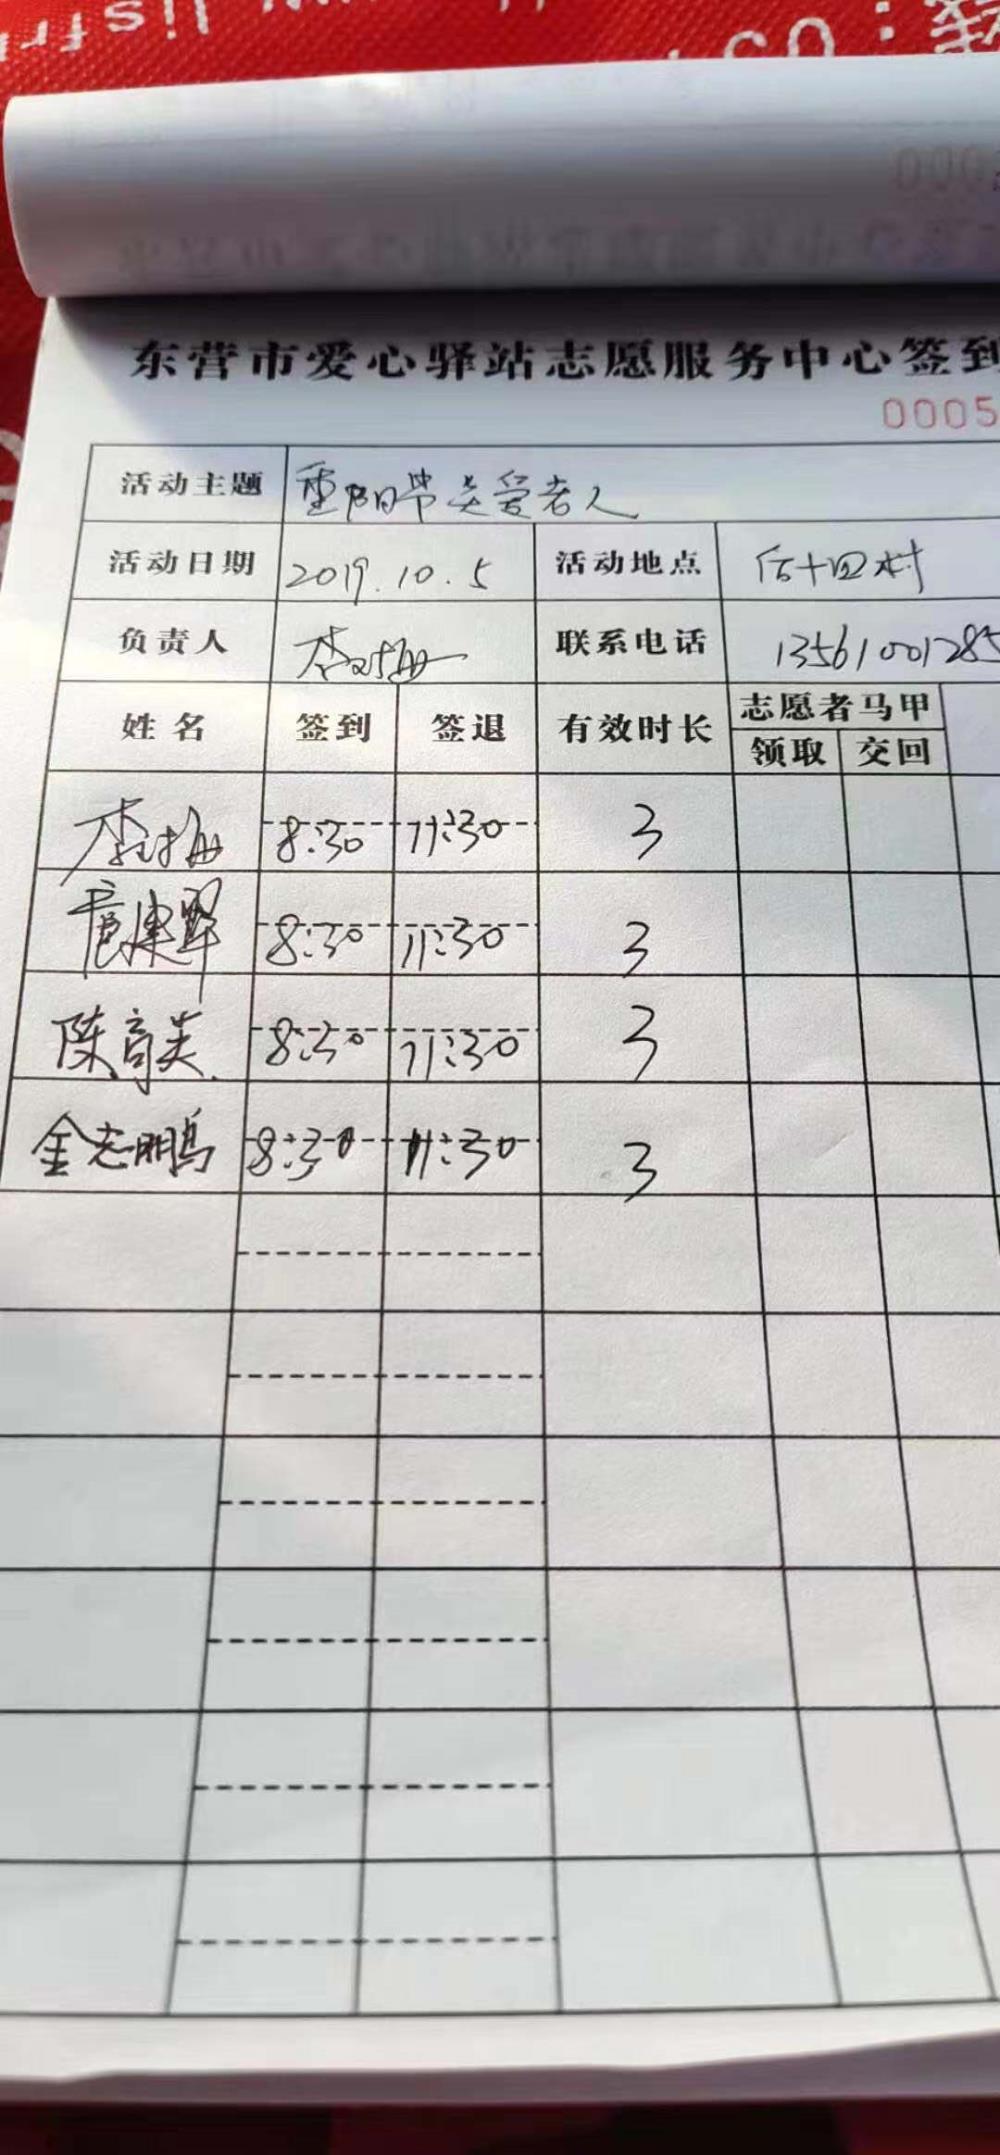 东营市爱心驿站志愿服务中心签到
0005
活动主题 重阳节关爱老人
活动日期 2019.10.5 活动地点 后十四村
负责人 联系电话 13561001285
姓名 签到 签退 有效时长 志愿者马甲
领取 交回
8:30 11:30 3
8:30 11:30 3
陈 英 8:30 11:30 3
金志鹏 8:30 11:30 3